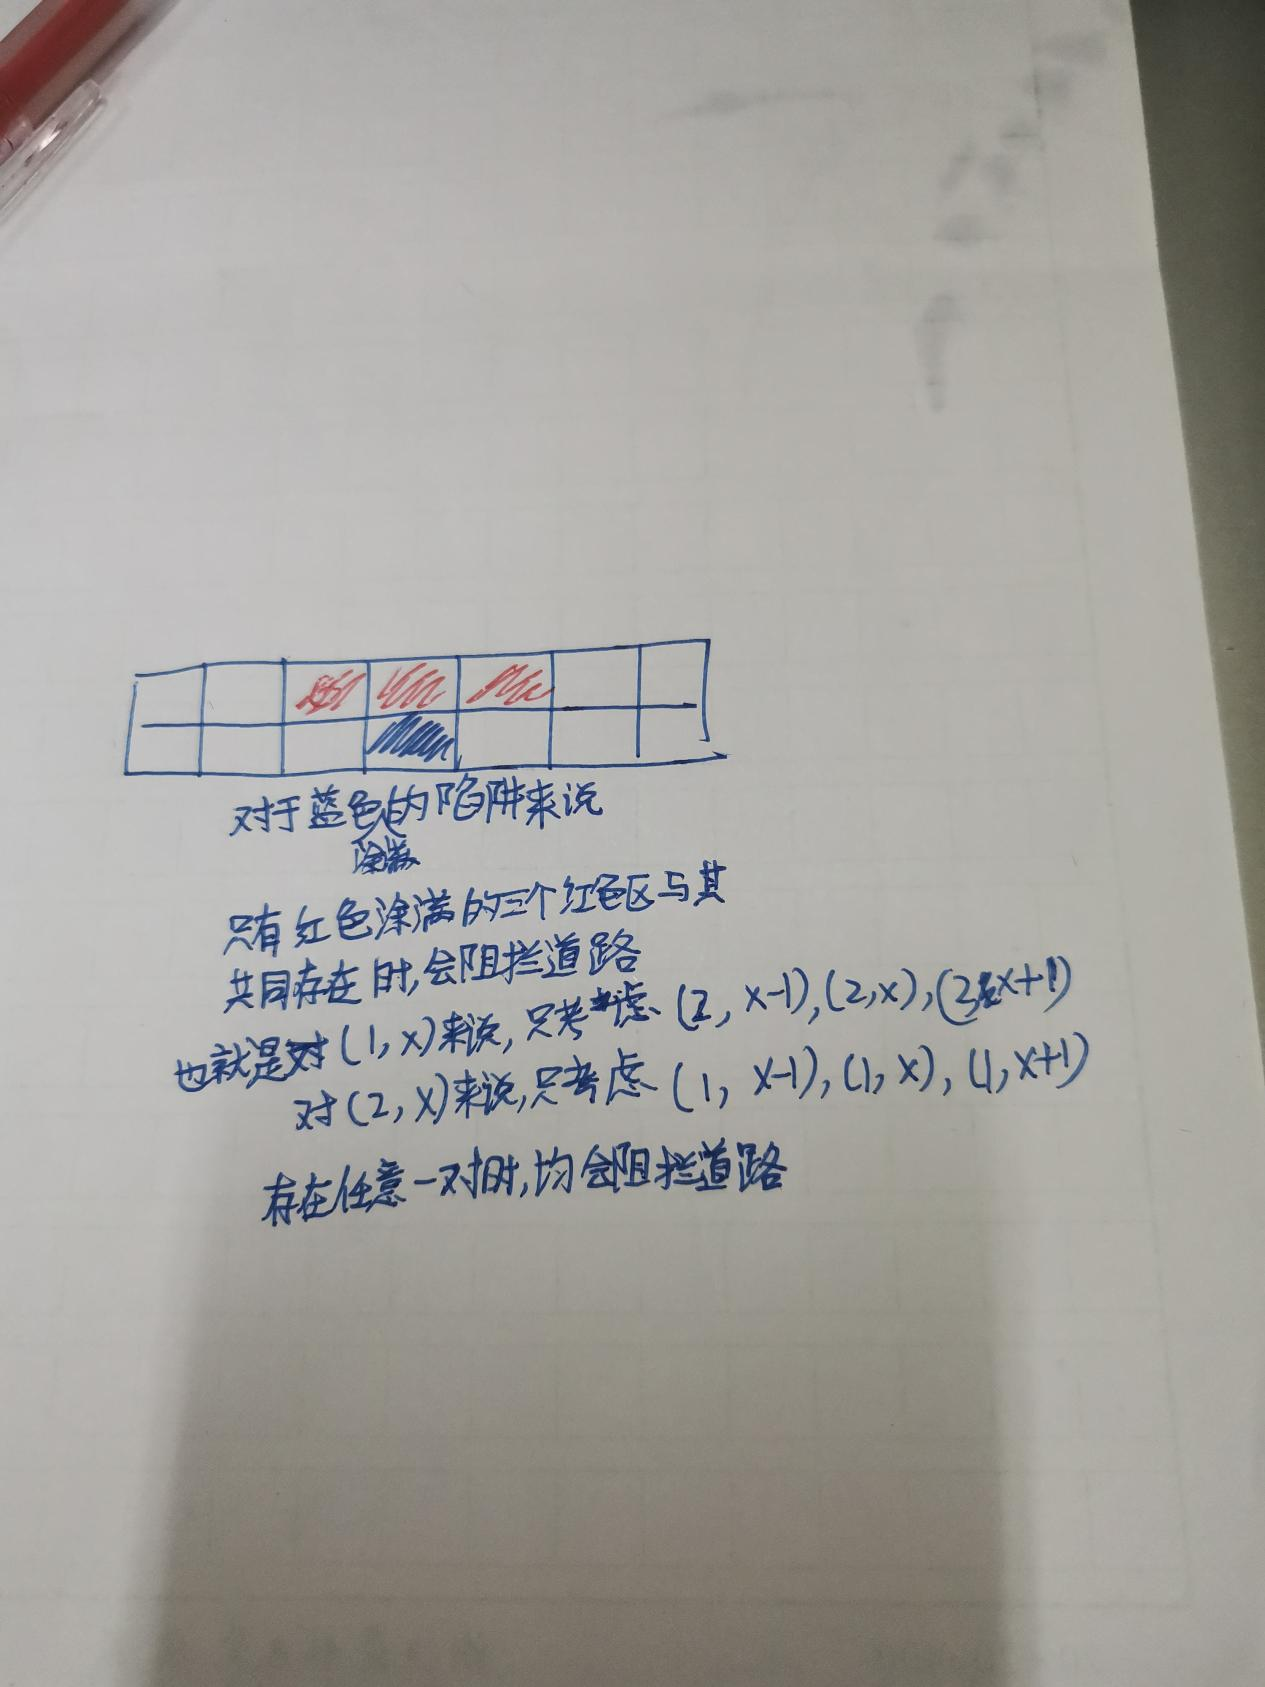 对于蓝色的陷阱来说
陷阱
只有红色涂满的三个红色区与其
共同存在时,会阻拦道路
也就是对(1,x)来说,只考虑(2,x-1),(2,x),(2,x+1)
对(2,x)来说,只考虑(1,x-1),(1,x),(1,x+1)
存在任意一对时,均会阻拦道路